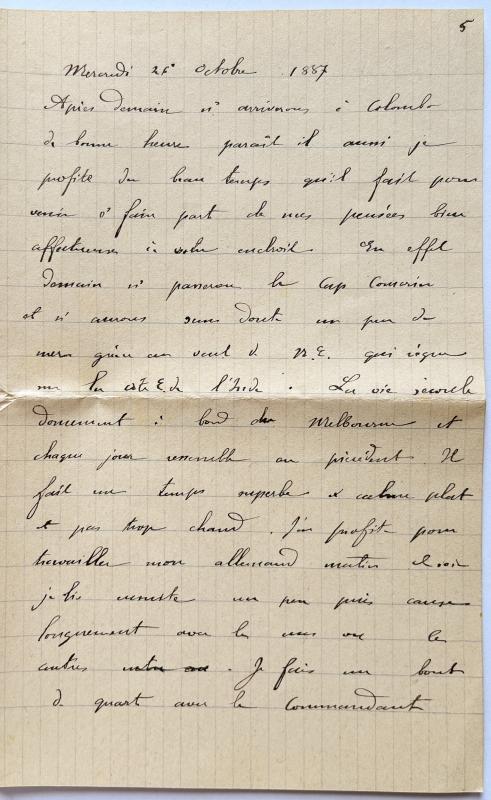 5
Mercredi 26 Octobre 1887
Après demain ns arriverons à Colombo
de bonne heure paraît il aussi je
profite du beau temps qu'il fait pour
venir faire part de mes pensées bien
affectueuses à votre endroit. En effet
demain ns passerons le Cap Comorin
et ns aurons sans doute un peu de
mer grâce au vent de N.E. qui règne
sur la côte E. de l'Inde. La vie s'écoule
doucement à bord du Melbourne et
chaque jour ressemble au précédent. Il
fait un temps superbe & calme plat
et pas trop chaud. J'en profite pour
travailler mon allemand matin et soir
je lis ensuite un peu puis cause
longuement avec les uns ou les
autres. Je fais un bout
de quart avec le Commandant